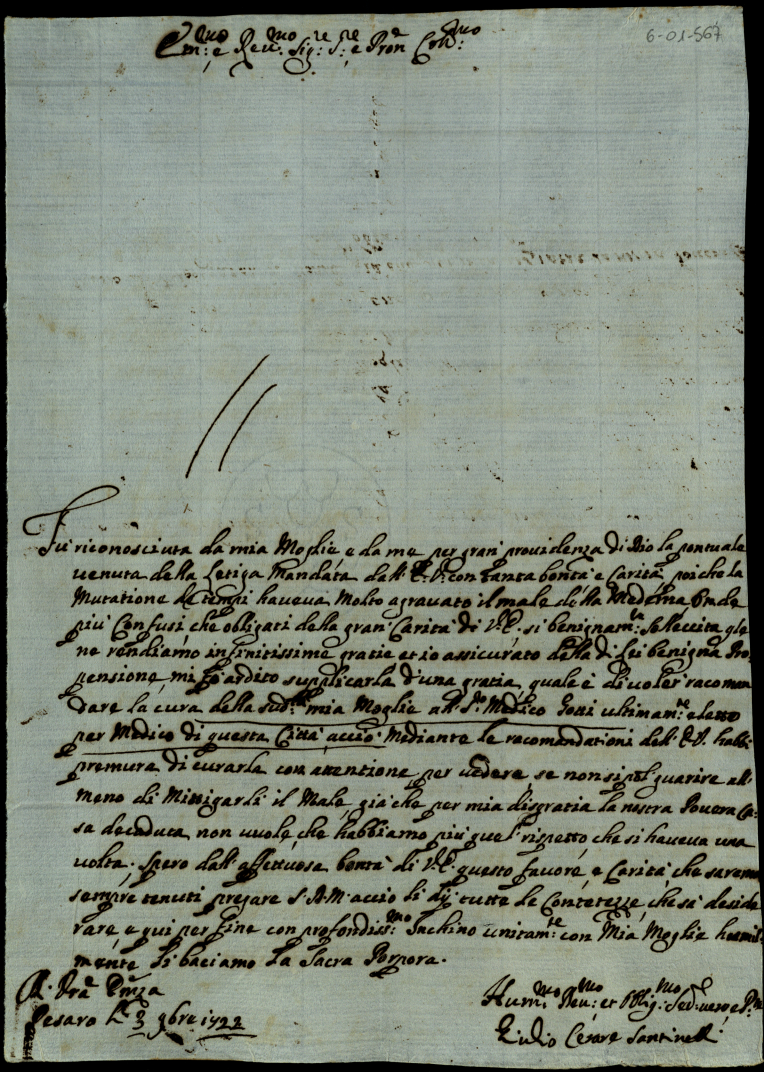 6-01-567
Em:mo e Rev:mo Sig:re S:re e Pron Col:mo
Fù riconosciuta da mia Moglie e da me per gran providenza di Dio la pontuale
venuta della Letiga Mandata dall' E.V. con tanta bontà e Carità, poiche la
Mutatione de tempi haveva Molto agravato il male della Medema Onde
più Confusi che obligati della gran Carità di V.E. si benignam:te
ne rendiamo infinitissime gratie et io assicurato della di Lei benigna Pro
pensione, mi fò ardito supplicarla d'una gratia, quale è di voler racoman
dare la cura della sud:ta mia Moglie all S:r Medico Gotti ultimam:te eletto
per Medico di questa Città acciò Mediante le recomandationi dell' E.V. habbi
premura di curarla con attentione per vedere se non si può guarire al
meno di Mittigarli il Male, già che per mia disgratia la nostra Povera Ca
sa decaduta non vuole che habbiamo più quel rispetto che si haveva una
volta. Spero dall' affettuosa bontà di V.E. questo favore e Carità che saremo
sempre tenuti pregare S.D.M. acciò li dij tutte le Contetezze che sà deside
rare e qui per fine con profondiss:mo Inchino unitam:te con Mia Moglie humil
mente li baciamo la Sacra Porpora.
Di Vra Em:za
Pesaro li 3 9bre 1722
Hum:mo Dev:mo et Oblig:mo Ser:
Giulio Cesare Santinelli